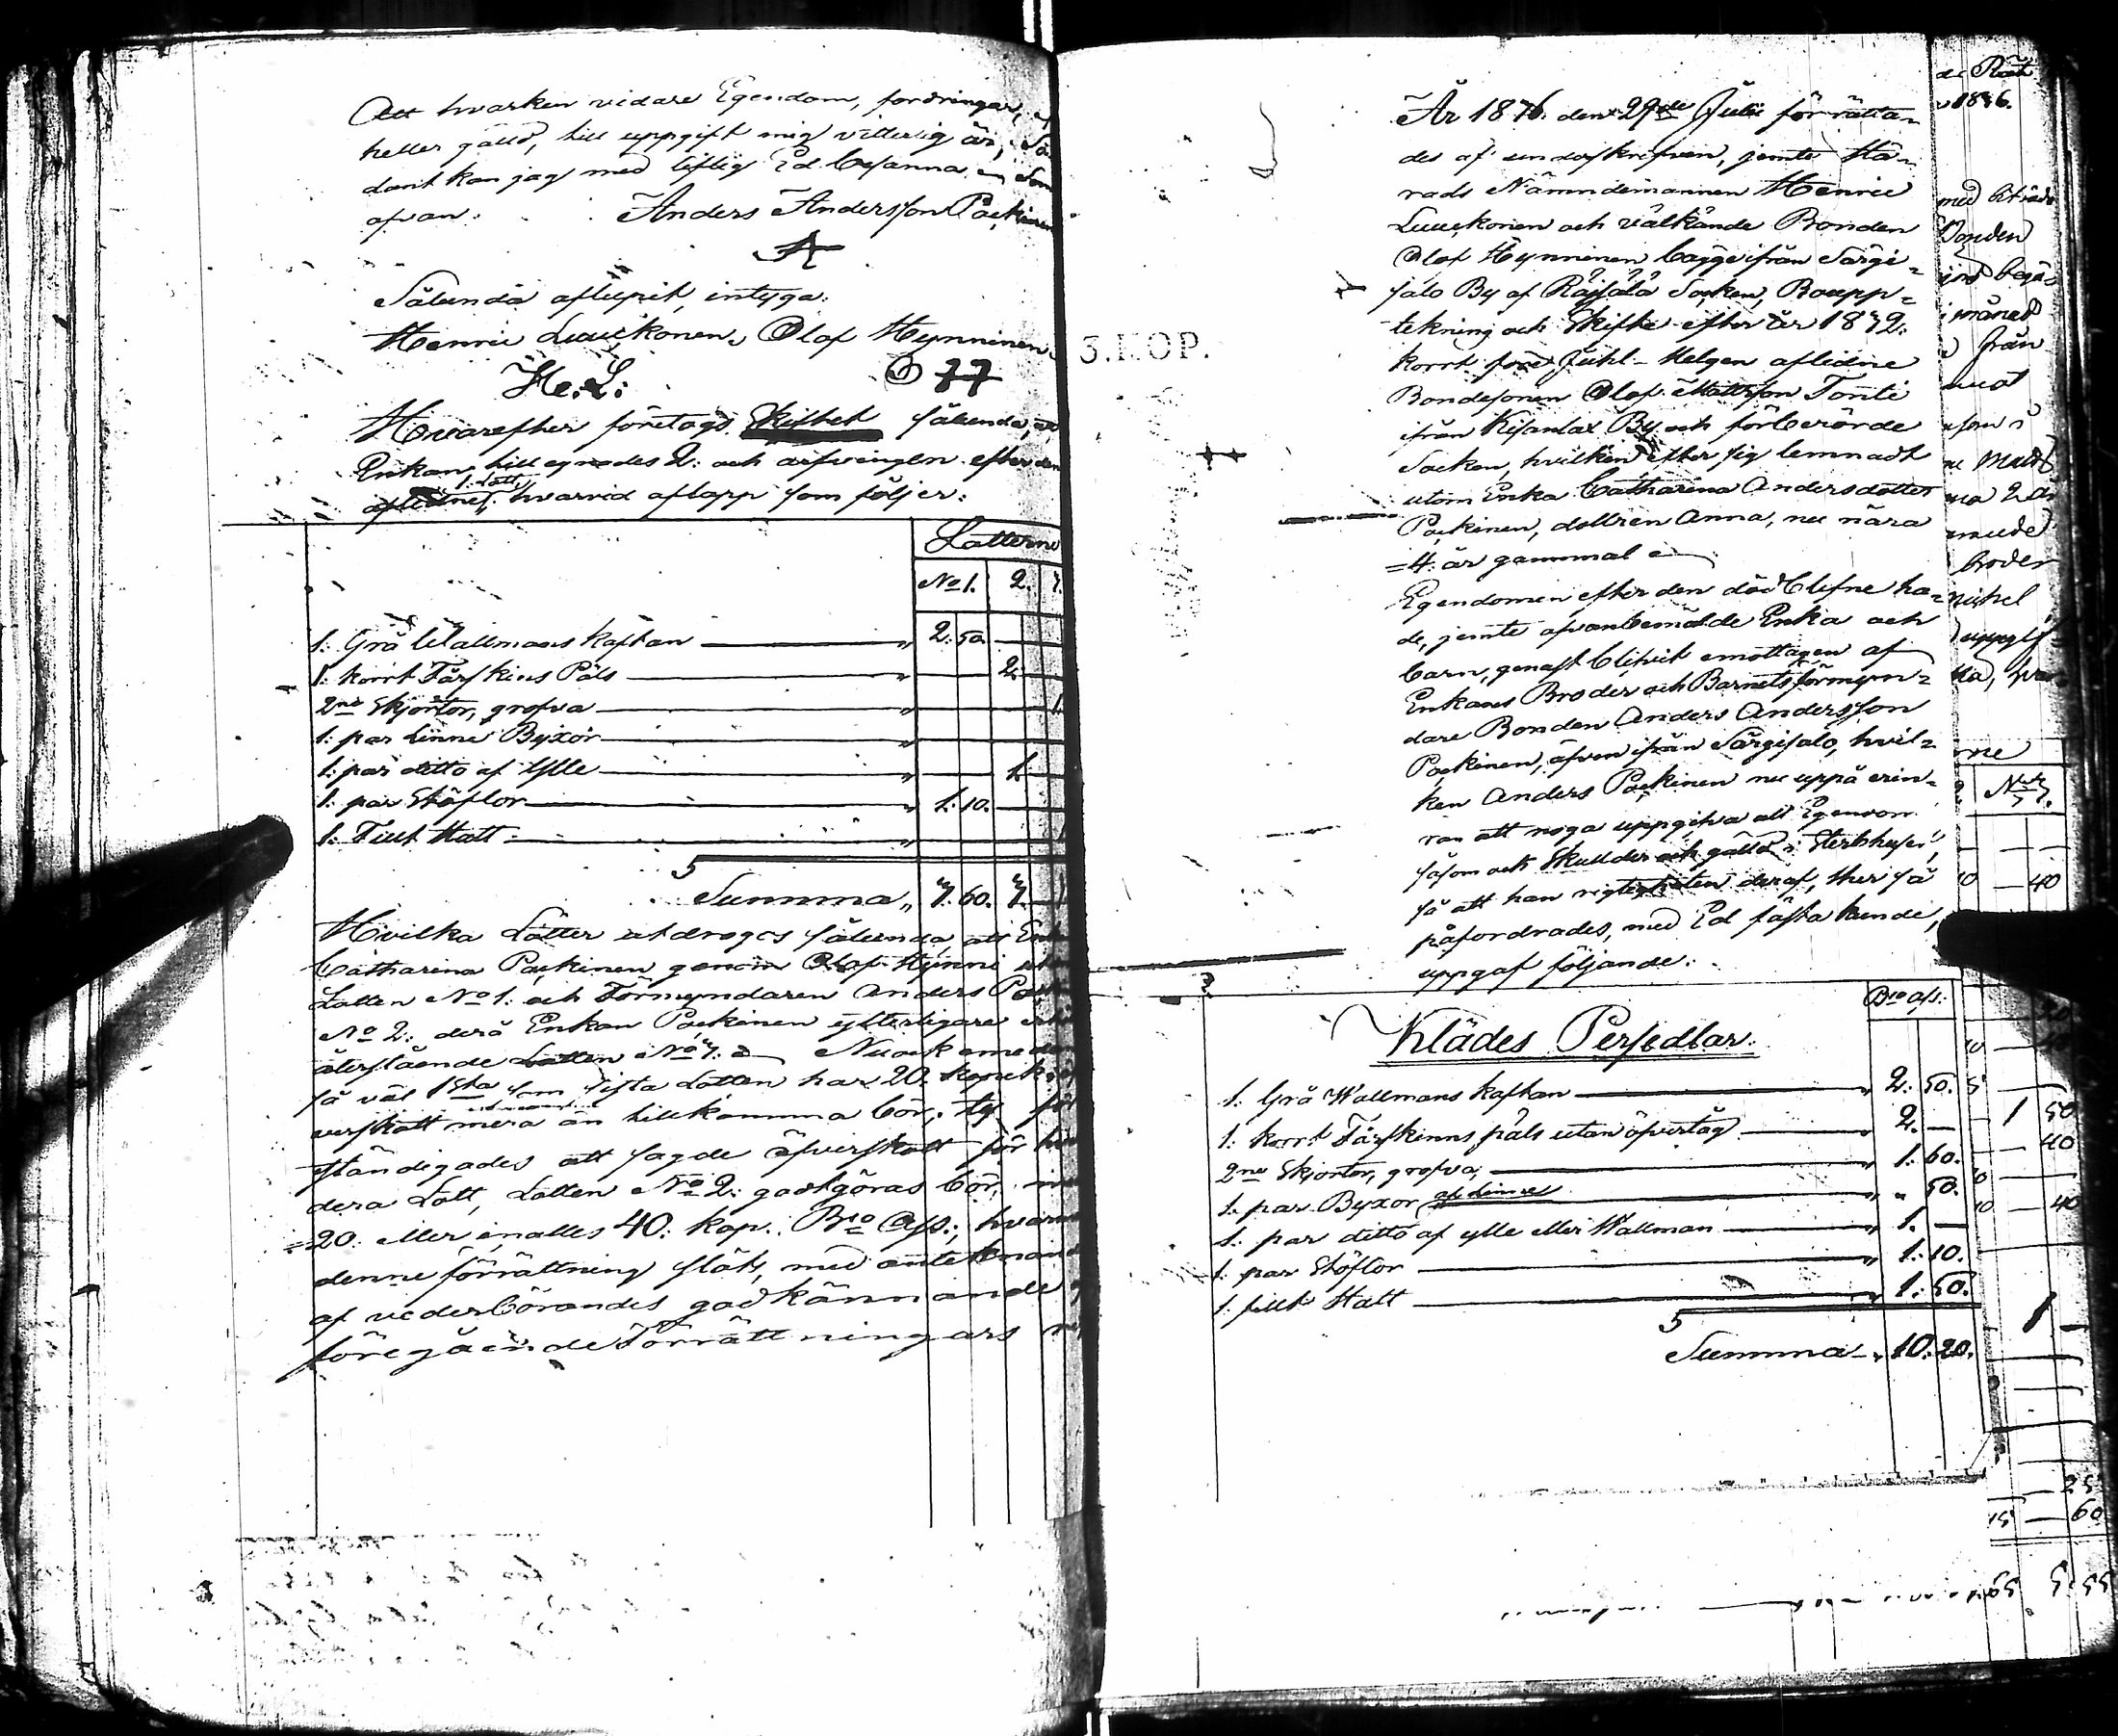 Att hvarken vidare Egendom, fordringar,
heller gäld, till uppgift mig vitterlig är, Så
dant kan jag med liflig Ed besanna, som
ofvan. Anders Andersson Paękinen
A
Sålunda aflupit, intyga:
Henric Luuękonen, Olof Hynninen
He: L:
Hvarefter företags Skiftet sålunda, att
Enkan tillegnades 2: och arfvingen efter den
aflidne, 1. Lott, hvarvid aflapp som följer:
Lotterne
No 1. 2.
1: Grå Wallmans kaftan — " 2: 50. —
1: kort Fårskins Päls — " — 2: —
2ne Skjortor, grofva — " — 1
1: par linne Byxor — "
1: par ditto af Ylle — " — 1: —
1: par Stöflor — " 1: 10. —
1: Filt Hatt — "
Summa " 3. 60. 3. —
Hvilka Lotter utdrogos sålunda, att Enk
Catharina Paękinen, genom Olof Hynni
Lotten No 1: och Förmyndaren Anders Paęk
No 2: derå Enkan Paękinen ytterligare
återstående Lotten No 3:
så väl 1sta som sista Lotten har 20. kopek
verskott mera än tillkomma bör, ty
ständigades att sagde öfverskott för
dera Lott, Lotten No 2: godtgöras bör,
=20: eller inalles 40: kop: Bco Ass:, hvarmed
denne förrättning slöts, med antecknande
af vederbörandes godkännande
föregående Förrättningars
3. KOP.
År 1836. den 29de Julii förrätta-
des af undoskrifven, jemte Hä-
rads Nämndemannen Henric
Luuękonen och välkände Bonden
Olof Hynninen bägge ifrån Särgi-
salo By af Räisälä Socken, Boupp-
tekning och Skifte efter år 1832:
kort före Juhl-Helgen aflidne
Bondesonen Olof Mattsson Tonti
ifrån Kisanlax By och förberörde
Socken, hvilken efter sig lemnadt
utom Enka Catharina Andersdotter
Paękinen, dottren Anna, nu nära
=4: år gammal
Egendomen efter den död blefne ha-
de, jemte ofvanbemälde Enka och
barn, genast blifvit emottagen af
Enkans Broder och Barnets förmyn-
dare Bonden Anders Andersson
Paękinen, äfven ifrån Särgisalo, hvil-
ken Anders Paękinen nu uppå erin-
ran att noga uppgifva all Egendom
såsom ock Skulder och gäld i Sterbhuset,
så att han rigtigheten deraf, ther så
påfordrades, med Ed fästa kunde,
uppgaf följande:
Bco Ass:
Klädes Persedlar.
1: Grå Wallmans kaftan — " 2: 50.
1: kort Fårskinns päls utan öfvertåg — " 2. —
2ne Skjortor, grofva, — " 1: 60.
1: par Byxor af linne — " " 50.
1: par ditto af ylle eller Wallman — " 1. —
1: par Stöflor — " 1: 10.
1: filt Hatt — " 1: 50.
Summa " 10. 20.
de Rät
1836.
med biträde
Bonden
jord begä-
i månad
från
muot
som i
broder
Michel
rne
No 3.
— 40
1 50
— 40
— 40
1 —
25
15 — 60